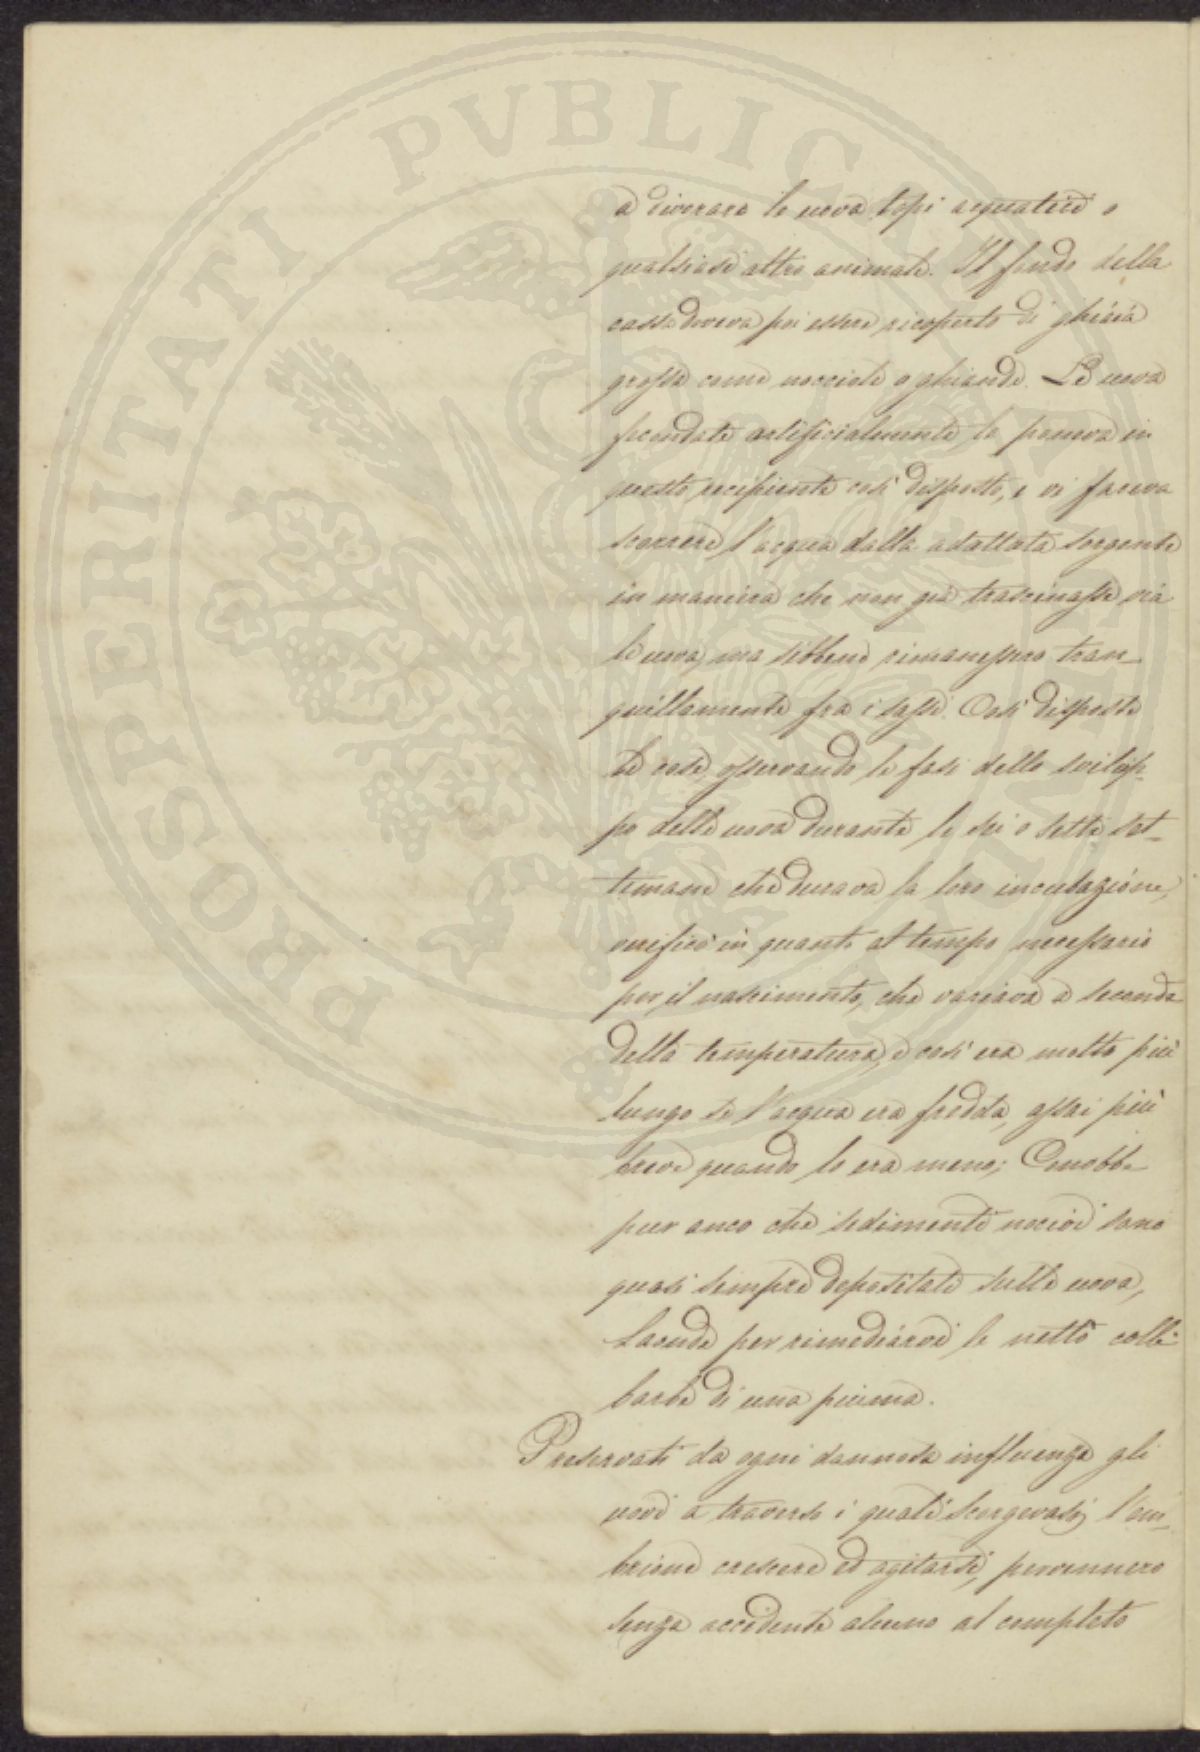 a divorare le uova topi acquatici o
qualsiasi altro animale. Il fondo della
cassa doveva poi essere ricoperto di ghiaia
grossa come nocciole o ghiande. Le uova
fecondate artificialmente, le poneva in
questo recipiente così disposto, e vi faceva
scorrere l'acqua dalla adattata sorgente
in maniera che non già trascinasse via
le uova, ma sibbene rimanessero tran-
quillamente fra i sassi. Così disposte
le cose, osservando le fasi dello svilup-
po delle uova durante le sei o sette set-
timane che durava la loro incubazione,
verificò in quanto al tempo necessario
per il nascimento, che variava a seconda
della temperatura, e così era molto più
lungo se l'acqua era fredda, assai più
breve quando lo era meno; Conobbe
pur anco che sedimenti nocivi sono
quasi sempre depositati sulle uova,
laonde per rimediarvi le nettò colle
barbe di una piuma.
Preservati da ogni dannosa influenza gli
uovi a traverso i quali scorgevasi l'em-
brione crescere ed agitarsi, pervennero
senza accidente alcuno al completo
PROSPERITATI PVBLICAE